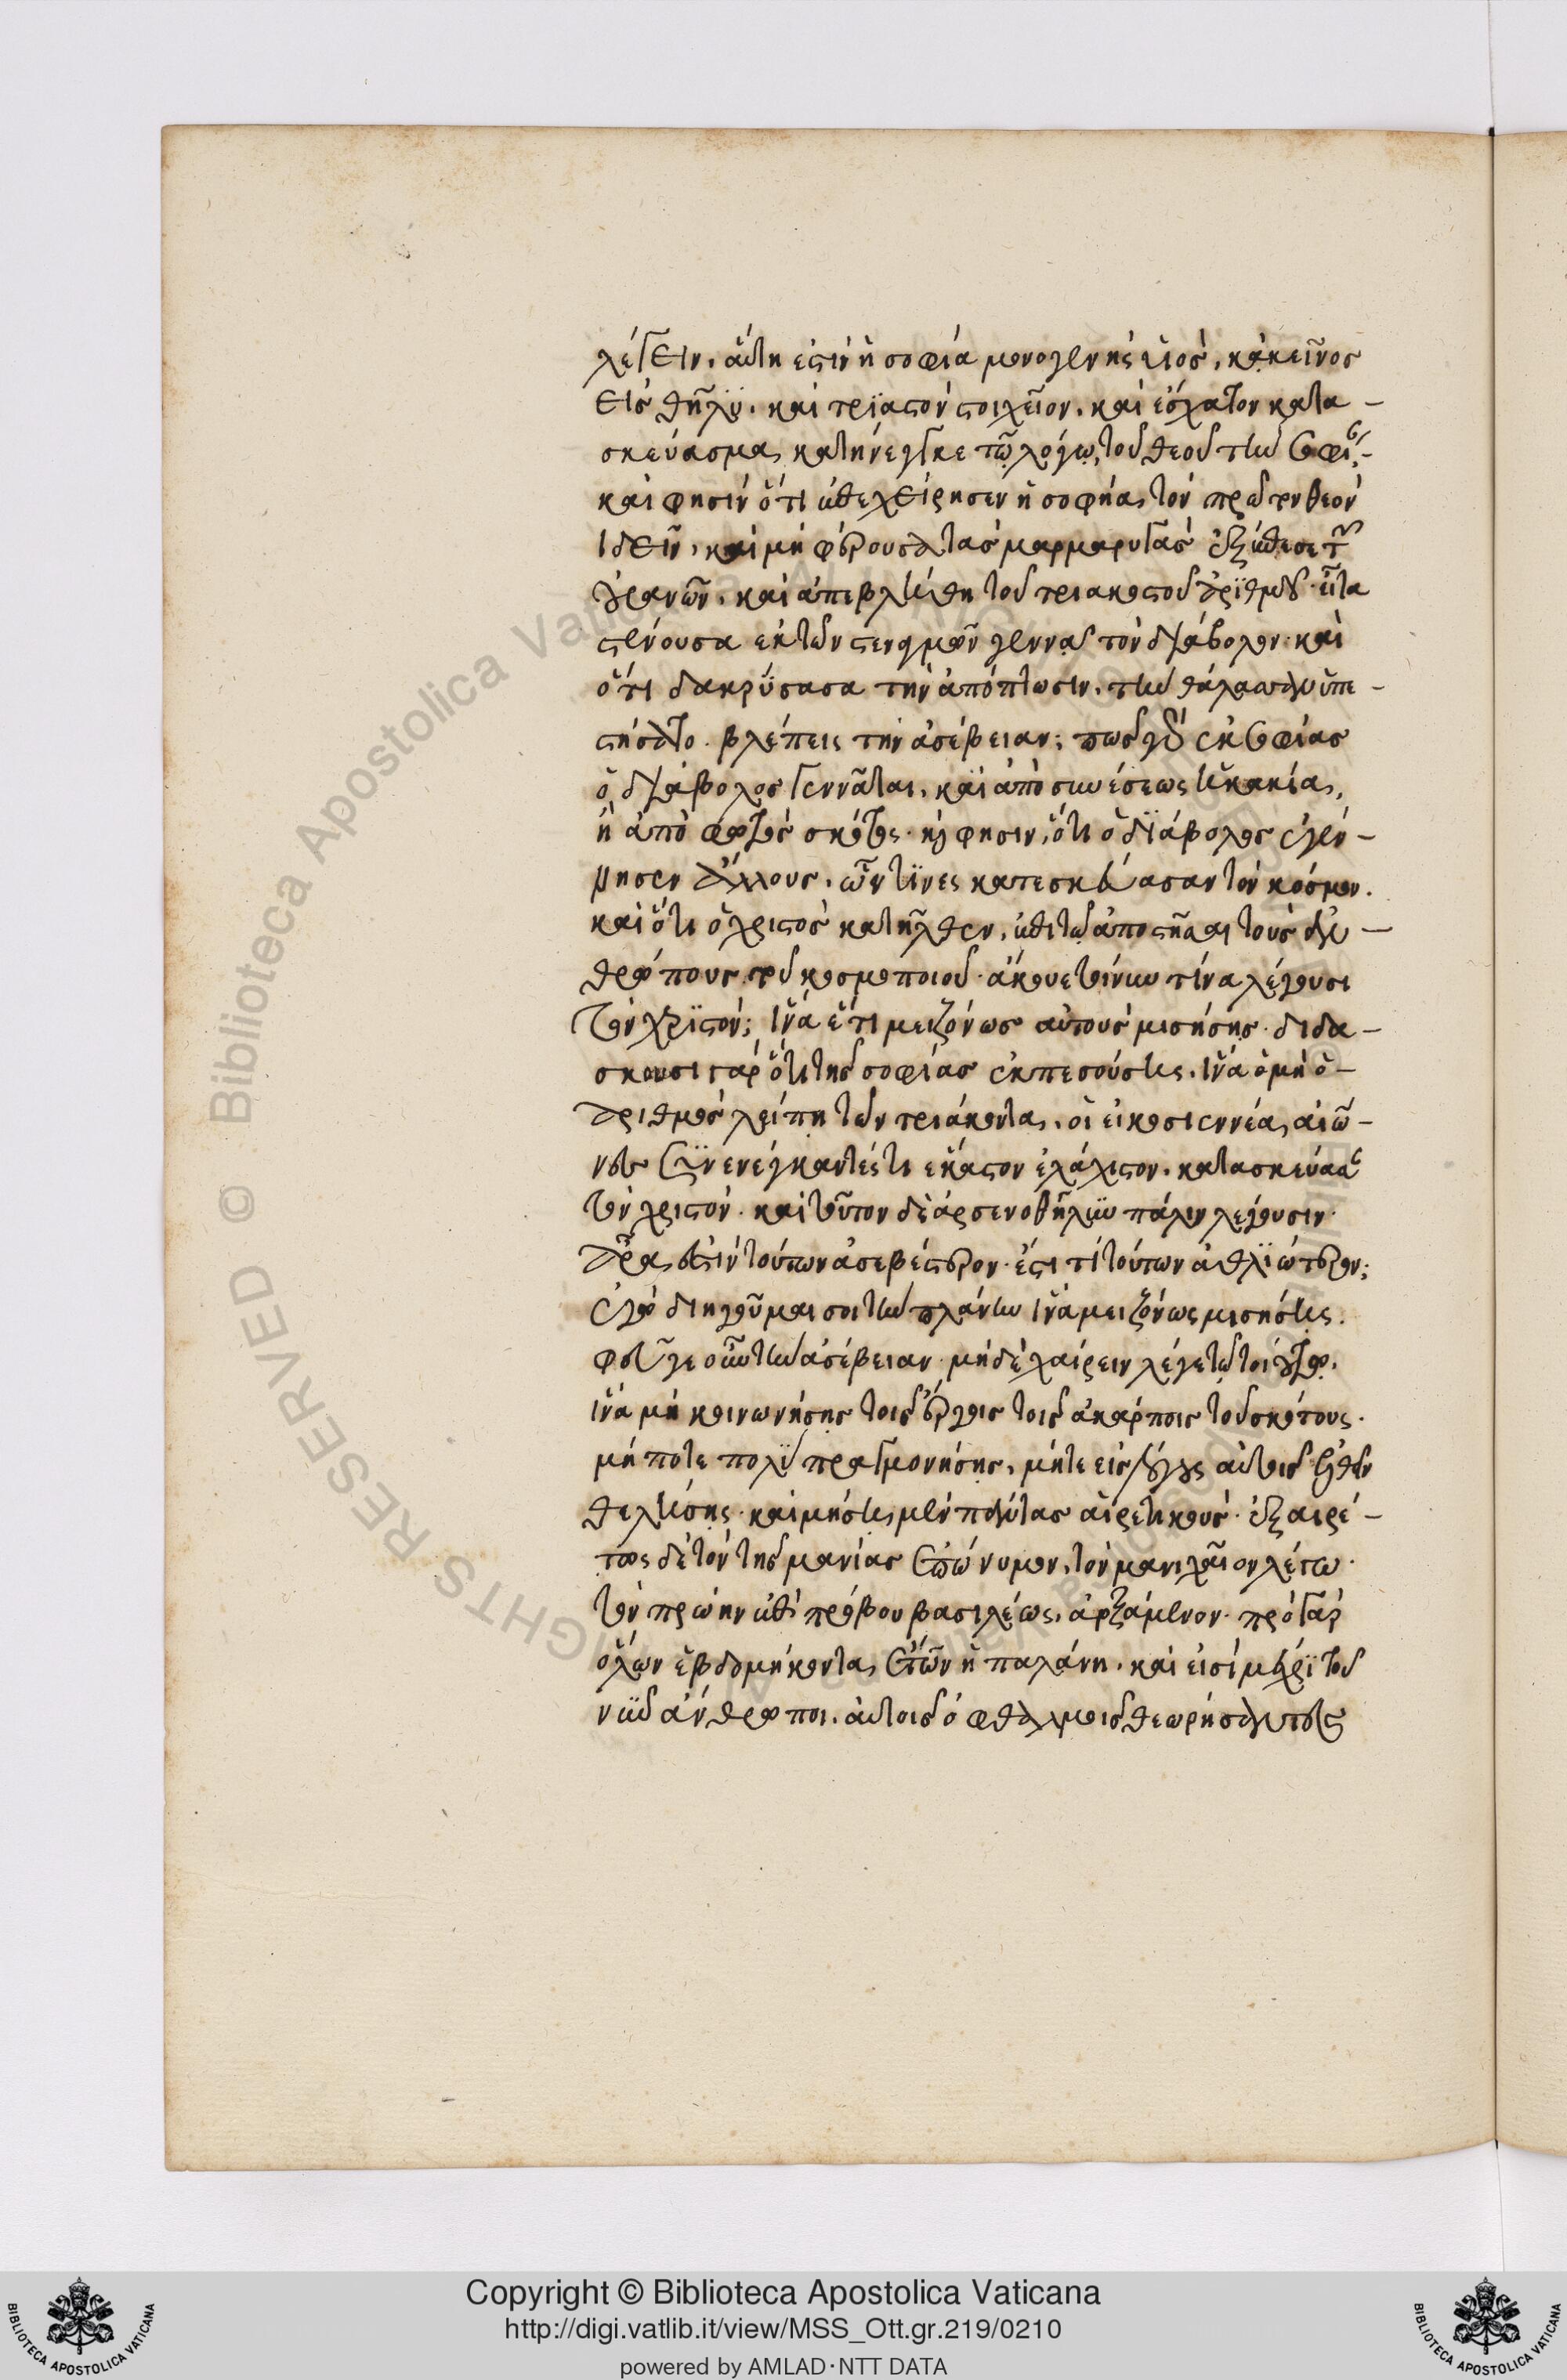 λέγειν. αὕτη ἐστὶν ἡ σοφία μονογενὴς υἱός. κἀκεῖνος
εἰς θῆλυ. καὶ τριαστὸν στοιχεῖον. καὶ ἔσχατον κατα-
σκεύασμα, κατήνεγκε τῷ λόγῳ τοῦ θεοῦ τὴν σοφί-
καὶ φησὶν ὅτι ἐπεχείρησεν ἡ σοφήα, τὸν πρῶτον θεὸν
ἰδεῖν, καὶ μὴ φέρουσα τὰς μαρμαρυγὰς ἐξέπεσε τῶν
οὐρανῶν. καὶ ἀπεβλήθη τοῦ τριακοστοῦ ἀριθμοῦ. εἶτα
στένουσα ἐκ τῶν στεναγμῶν γεννᾷ τὸν διάβολον. καὶ
ὅτι δακρύσασα τὴν ἀπόπτωσιν. τὴν θάλασσαν ὑπε-
στήσατο. βλέπεις τὴν ἀσέβειαν; πῶς γὰρ ἐκ σοφίας
ὁ διάβολος γεννᾶται. καὶ ἀπὸ συνέσεως ἡ κακία,
ἢ ἀπὸ φωτὸς σκότος. καὶ φησιν, ὅτι ὁ διάβολος ἐγέν-
νησεν ἄλλους. ὧν τινες κατεσκεύασαν τὸν κόσμον.
καὶ ὅτι ὁ χριστὸς κατῆλθεν, ἐπὶ τῷ ἀποστῆσαι τοὺς ἀν-
θρώπους τοῦ κοσμοποιοῦ. ἄκουε τοίνυν τίνα λέγουσι
τὸν χριστόν; ἵνα ἔτι μειζόνως αὐτοὺς μισήσῃς. διδα-
σκουσι γὰρ ὅτι τῆς σοφίας ἐκπεσούσης. ἵνα ὁ μὴ ὁ-
ἀριθμὸς λείπῃ τῶν τριάκοντα. οἱ εἰκοσιεννέα, αἰῶ-
νες συνενέγκαντές τι ἕκαστον ἐλάχιστον. κατασκεύασ
τὸν χριστόν. καὶ τοῦτον δὲ ἀρσενοθῆλυν πάλιν λέγουσιν.
ἆρα, ἐστὶν τούτων ἀσεβέστερον. ἔστι τί τούτων ἀθλιώτερον;
ἐγὼ διηγοῦμαι σοι τὴν πλάνην ἵνα μειζόνως μισήσῃς.
φεῦγε οὖν τὴν ἀσέβειαν. μὴδὲ χαίρειν λέγε τῷ τοιούτῳ.
ἵνα μὴ κοινωνήσῃς τοῖς ἔργοις τοῖς ἀκάρποις τοῦ σκότους.
μή ποτε πολυπραγμονήσῃς, μήτε εἰς λόγους αὐτοῖς ἐλθεῖν
θελήσῃς. καὶ μήσει, μὲν πάντας αἱρετικούς. ἐξαιρέ-
τως δὲ τὸν τῆς μανίας ἐπώνυμον, τὸν μανιχαῖον λέγω.
τὸν πρώην ἐπὶ πρόβου βασιλέως, ἀρξάμενον. πρὸ γὰρ
ὅλων ἑβδομήκοντα, ἐτῶν ἡ παλάνη. καὶ εἰσὶ μέχρι τοῦ
νῦν ἄνθρωποι. αὐτοῖς ὀφθαλμοῖς θεωρήσαντες
Biblioteca Apostolica Vaticana
RIGHTS RESERVED © Biblioteca Apostolica Vaticana
Copyright © Biblioteca Apostolica Vaticana
http://digi.vatlib.it/view/MSS_Ott.gr.219/0210
powered by AMLAD·NTT DATA
BIBLIOTECA APOSTOLICA VATICANA
BIBLIOTECA APOSTOLICA VATICANA